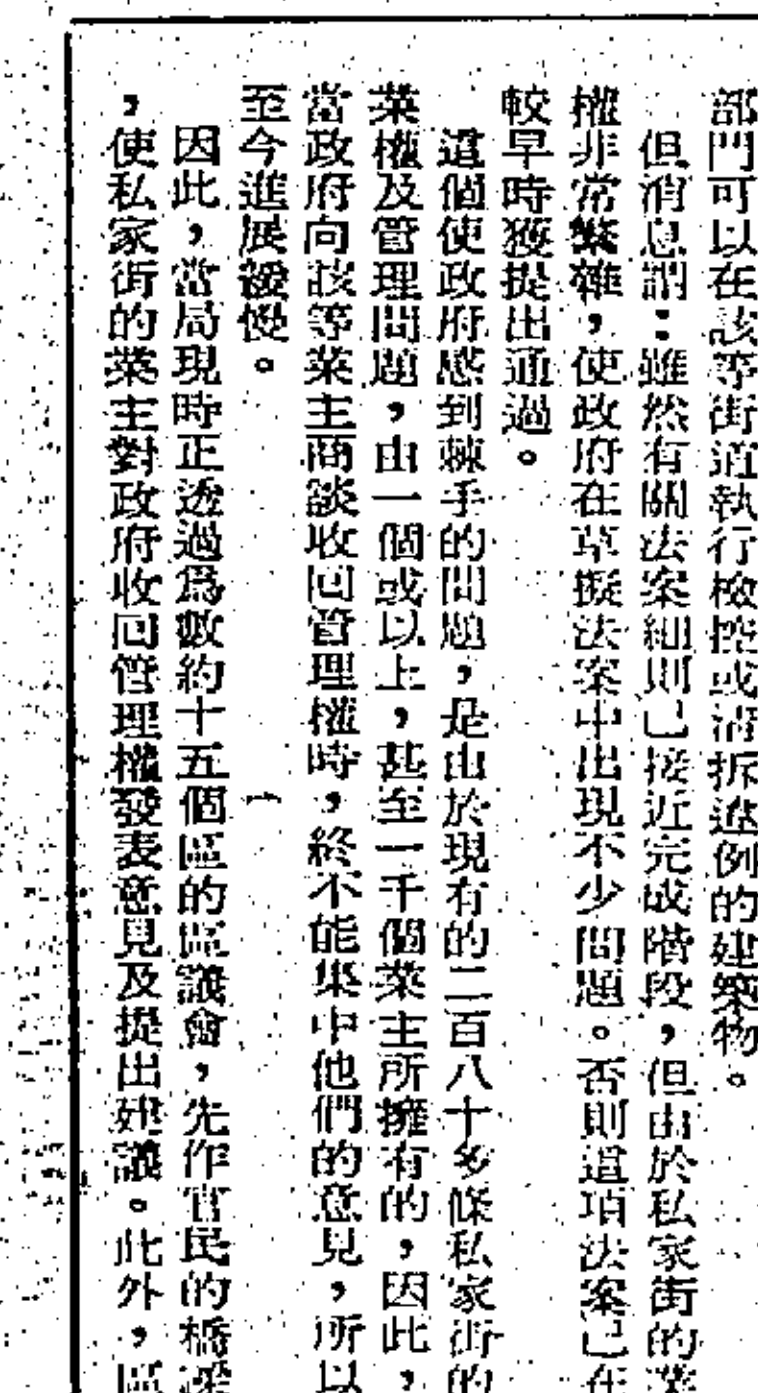 部門可以在該等街道執行檢控或清拆違例的建築物。
但消息謂：雖然有關法案細則已接近完成階段，但由於私家街的業
權非常繁雜，使政府在草擬法案中出現不少問題。否則這項法案已在
較早時獲提出通過。
這個使政府感到棘手的問題，是由於現有的二百八十多條私家街的
業權及管理問題，由一個或以上，甚至一千個業主所擁有的，因此，
當政府向該等業主商談收回管理權時，終不能集中他們的意見，所以
至今進展緩慢。
因此，當局現時正透過為數約十五個區的區議會，先作官民的橋樑
，使私家街的業主對政府收回管理權發表意見及提出建議。此外，區